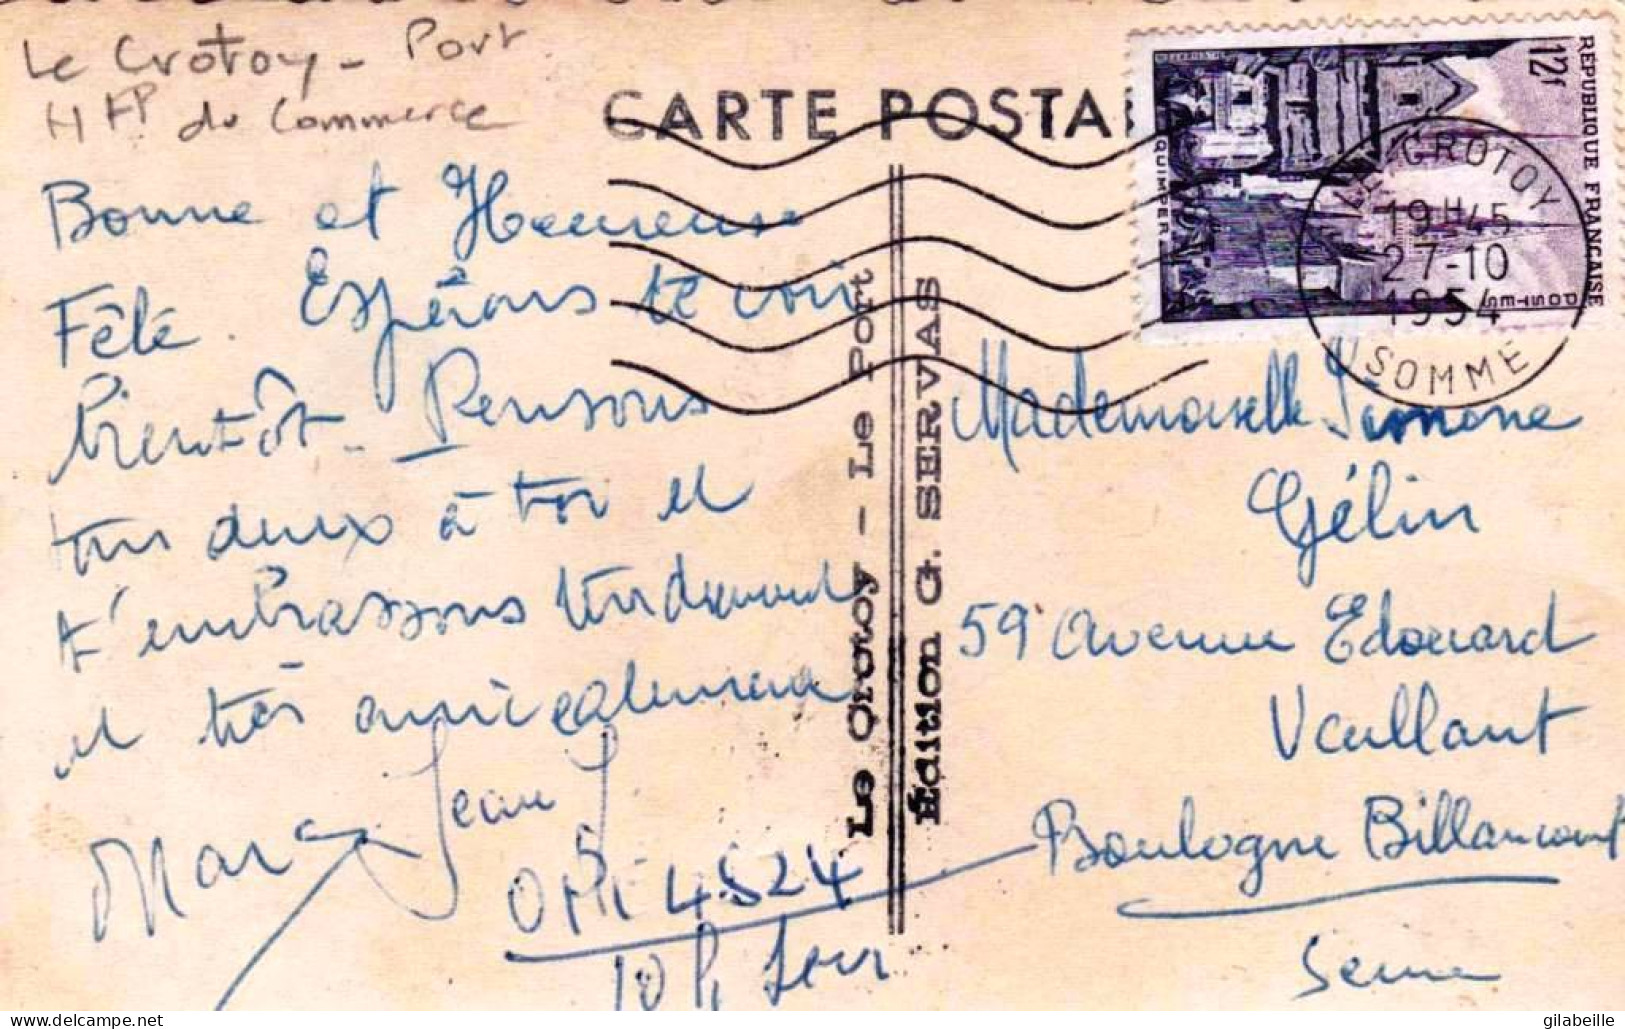 Le Crotoy - Port
du Commerce
CARTE POSTA
Bonne et Heureuse
Fête. Espérons te voir
bientôt. Pensons
tous deux à toi et
t'embrassons tendrement
et très amicalement
Marc Jean
4524
10 h
Le Crotoy - Le Port
Édition G. SERVAS
RÉPUBLIQUE FRANÇAISE
12f
QUIMPER
POSTES
LE CROTOY
19H45
27-10
1954
SOMME
Mademoiselle Simone
Gélin
59 Avenue Edouard
Vaillant
Boulogne Billancourt
Seine
gilabeille